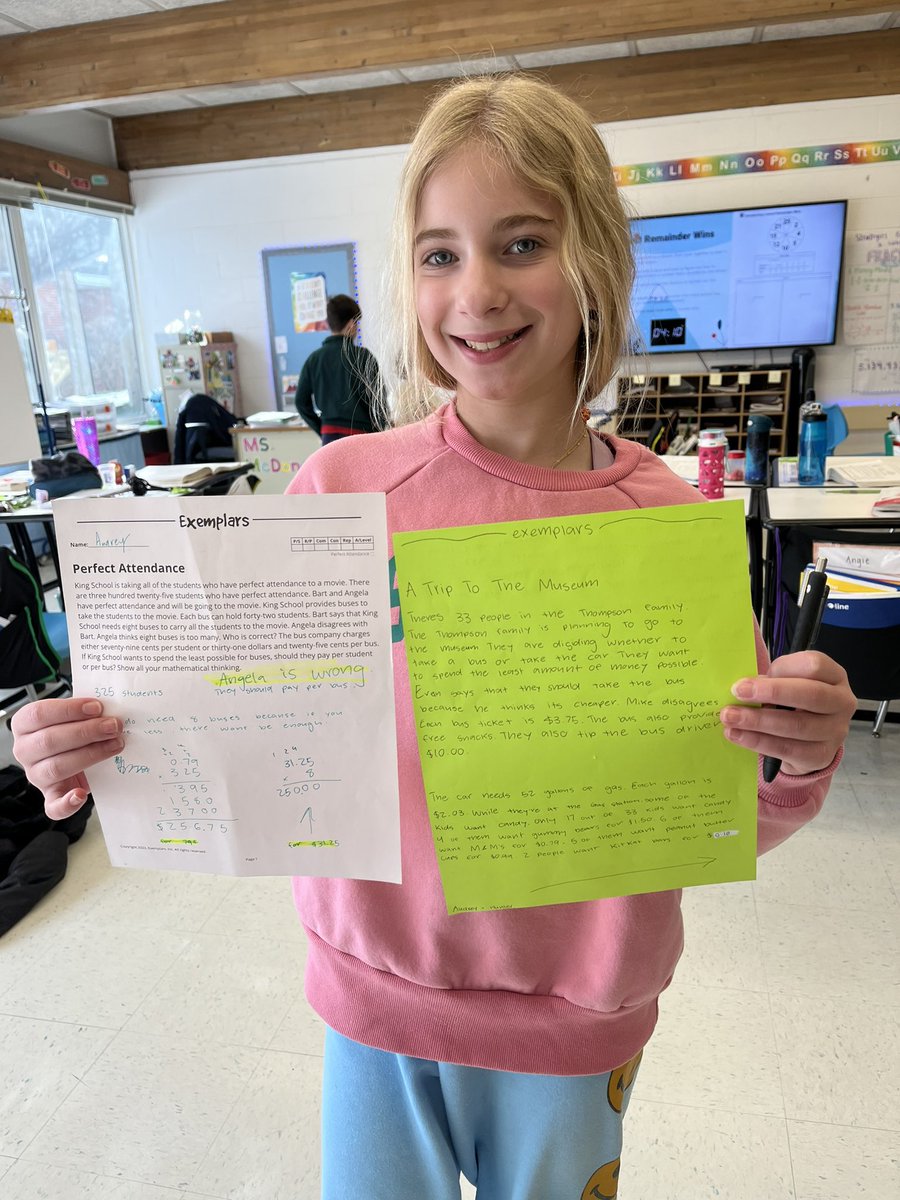 Jj Kk Ll Mm Nn Oo Pp Qq Rr Ss Tt Uu V
Remainder Wins
04:10
FRAC
MS.
McDon
Angie
Exemplars
Name: Audrey
P/S R/P Com Con Rep A/Level
Perfect Attendance
Perfect Attendance
King School is taking all of the students who have perfect attendance to a movie. There
are three hundred twenty-five students who have perfect attendance. Bart and Angela
have perfect attendance and will be going to the movie. King School provides buses to
take the students to the movie. Each bus can hold forty-two students. Bart says that King
School needs eight buses to carry all of the students to the movie. Angela disagrees with
Bart. Angela thinks eight buses is too many. Who is correct? The bus company charges
either seventy-nine cents per student or thirty-one dollars and twenty-five cents per bus.
If King School wants to spend the least possible for buses, should they pay per student
or per bus? Show all your mathematical thinking.
Angela is wrong
325 students
They should pay per bus
do need 8 buses because if you
less, there want be enough
0.79
x 3.25
395
1580
23700
$256.75
31.25
x 8
25000
for $31.25
Copyright 2023, Exemplars, Inc. All rights reserved.
Page 1
exemplars
A Trip To The Museum
Theres 33 people in the Thompson Family.
The Thompson family is planning to go to
the museum They are diciding whether to
take a bus or take the car. They want
to spend the least amount of money possible.
Even says that they should take the bus
because he thinks its cheaper. Mike disagrees
Each bus ticket is $3.75. The bus also provide
free snacks. They also tip the bus driver
$10.00.
The car needs 52 gallons of gas. Each gallon is
$2.03. While they're at the gas station some of the
kids want candy. only 17 out of 33 kids want candy
4 of them want gummy bears for $1.50. 6 of them
want M&M's for $0.79. 5 of them want peanut butter
cups for 2 people want KitKat bars for